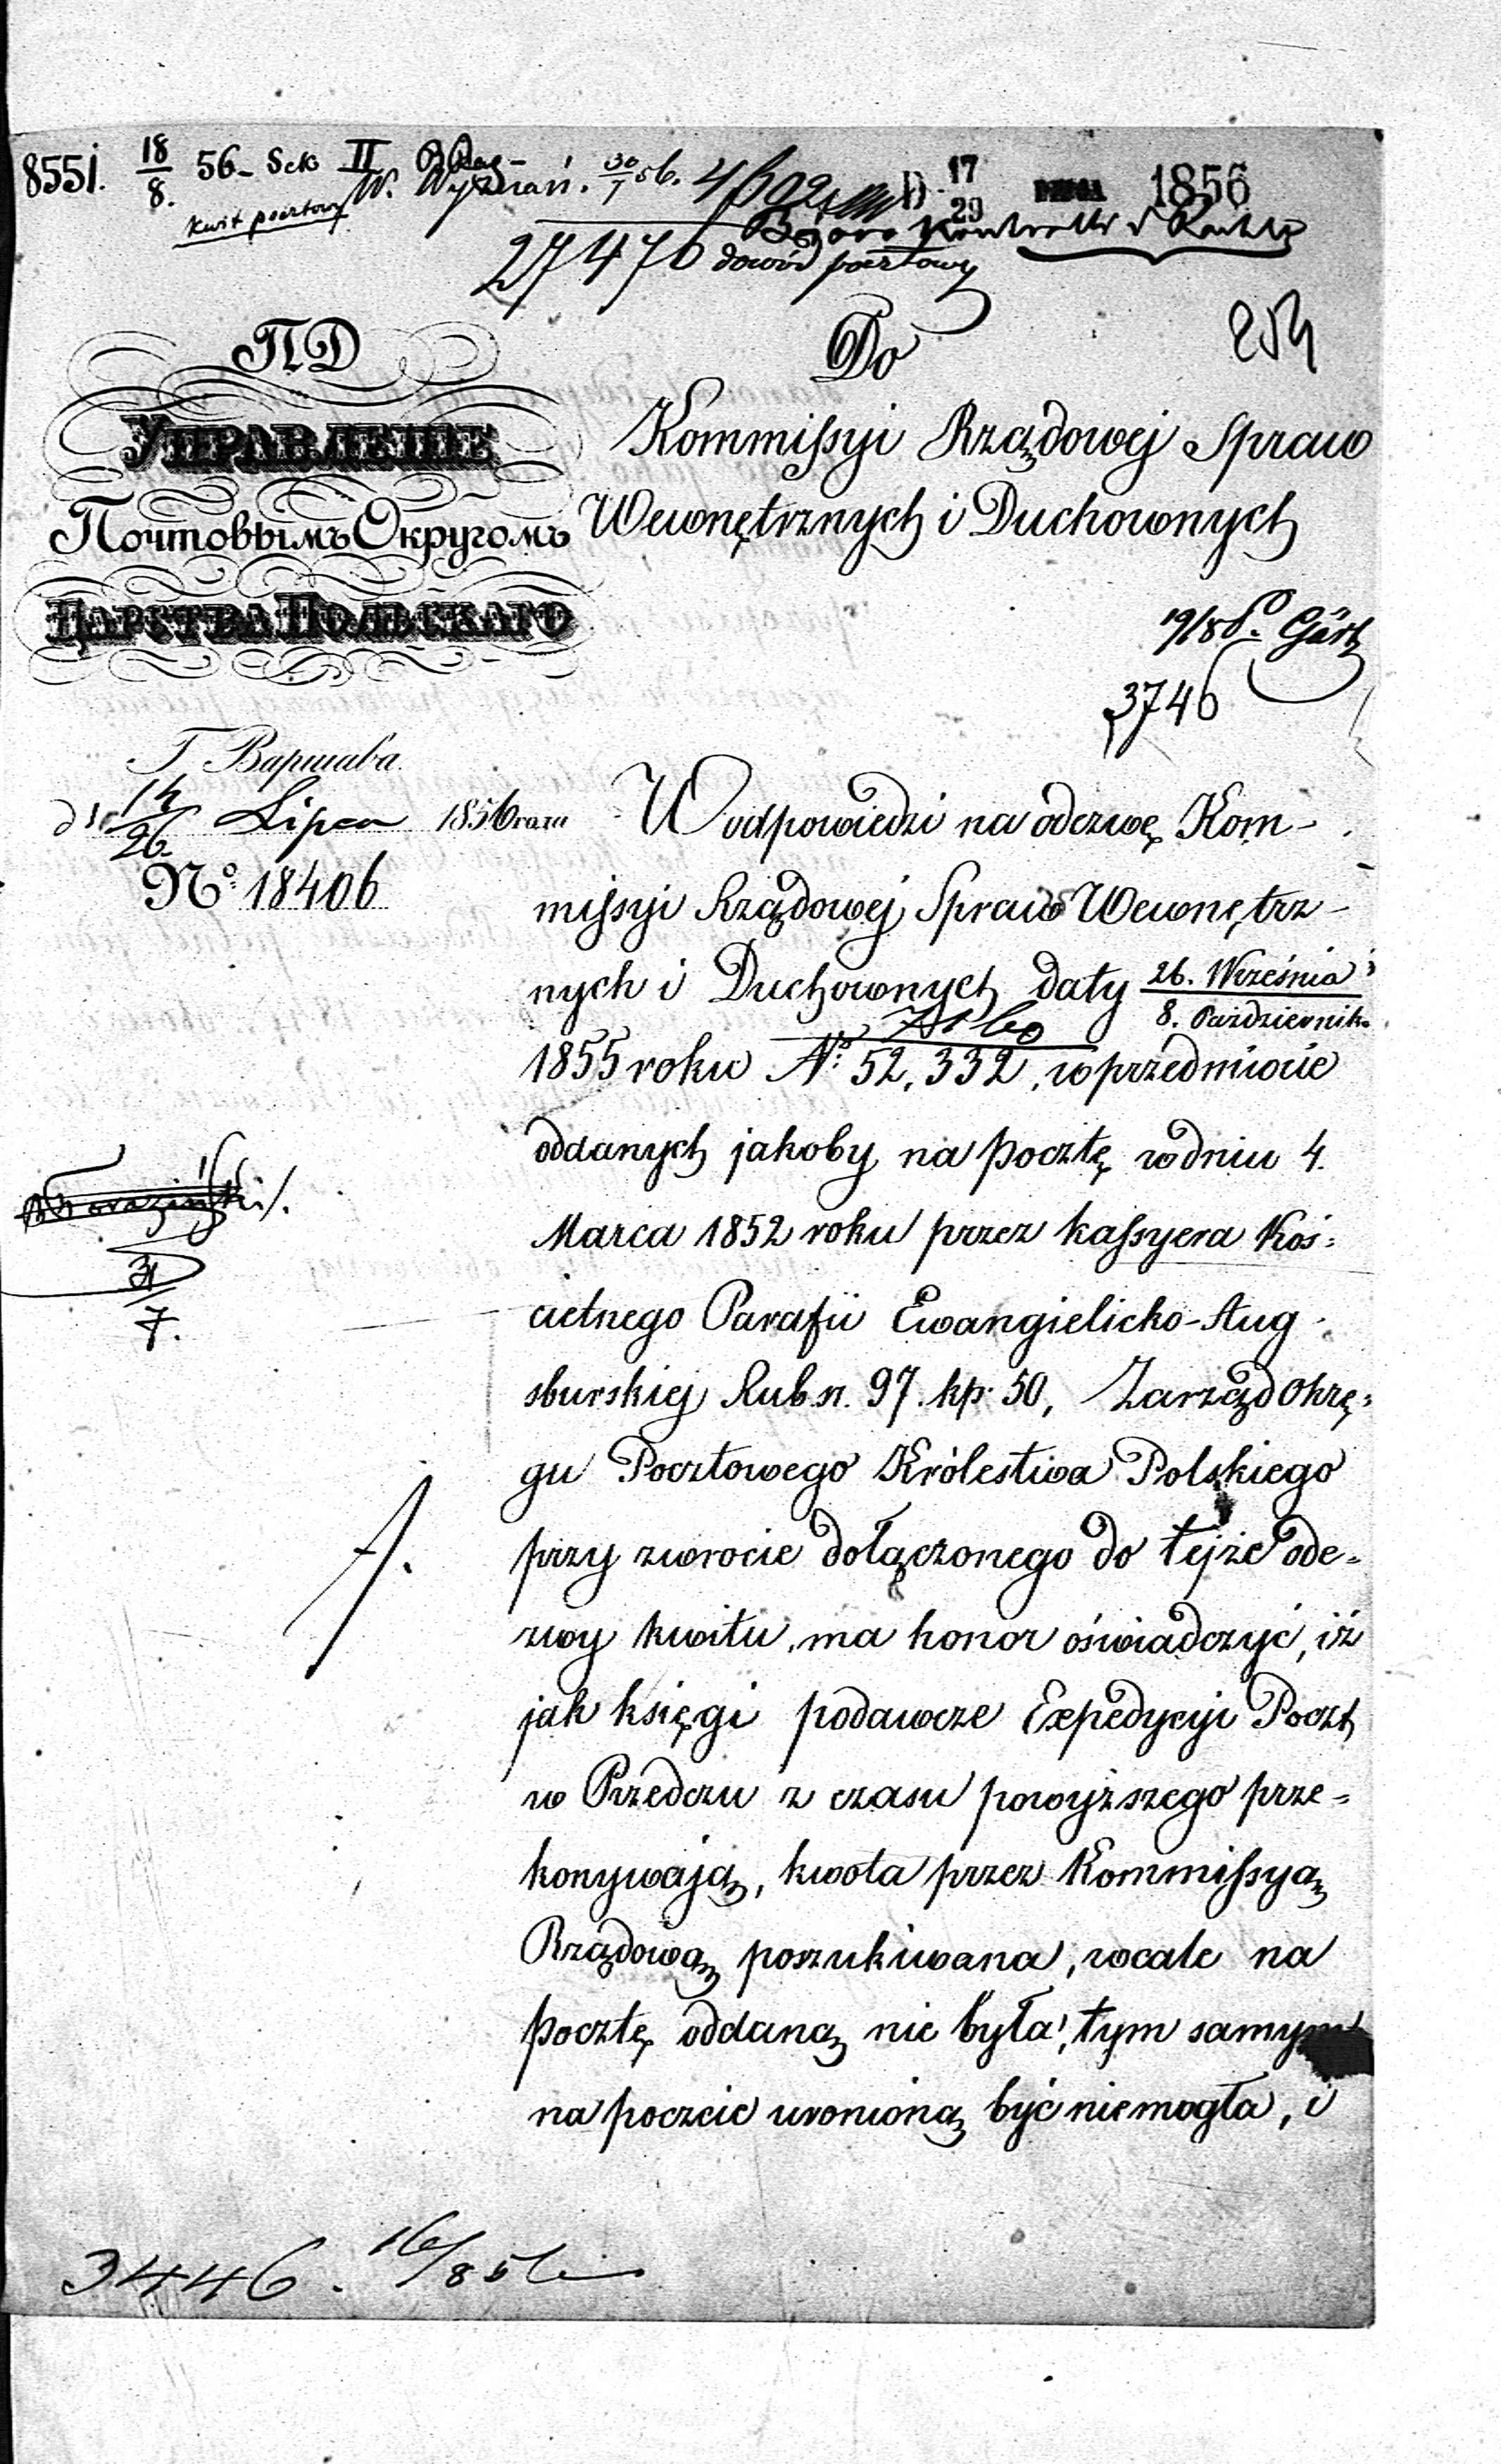 8551. 18/8. 56 - Sek II
W. Wyznań. 30/7 56. D. 17/29 1856
kwit pocztowy
27476 dowód pocztowy
ПД
УПРАВЛЕНІЕ
Почтовымъ Округомъ
ЦАРСТВА ПОЛЬСКАГО
Г. Варшава
d. 14/26 Lipca 1856 roku
№ 18406
Do
Kommissyi Rządowej Spraw
Wewnętrznych i Duchownych
19/8
3746
W odpowiedzi na odezwę Kom-
missyi Rządowej Spraw Wewnętrz-
nych i Duchownych daty 26. Września / 8. Październik.
1855 roku № 52,332, w przedmiocie
oddanych jakoby na pocztę w dniu 4.
Marca 1852 roku przez kassyera Koś=
cielnego Parafii Ewangielicko-Aug
sburskiej Rub. sr. 97. kp. 50, Zarząd Okrę=
gu Pocztowego Królestwa Polskiego
przy zwrocie dołączonego do tejże ode=
zwy kwitu, ma honor oświadczyć, iż
jak księgi podawcze Expedycyi Poczt
w Przedczu z czasu powyższego prze=
konywają, kwota przez Kommissyą
Rządową poszukiwana, wcale na
pocztę oddaną nie była, tym samym
na poczcie uronioną być niemogła, i
31/7.
3446. 16/8 56